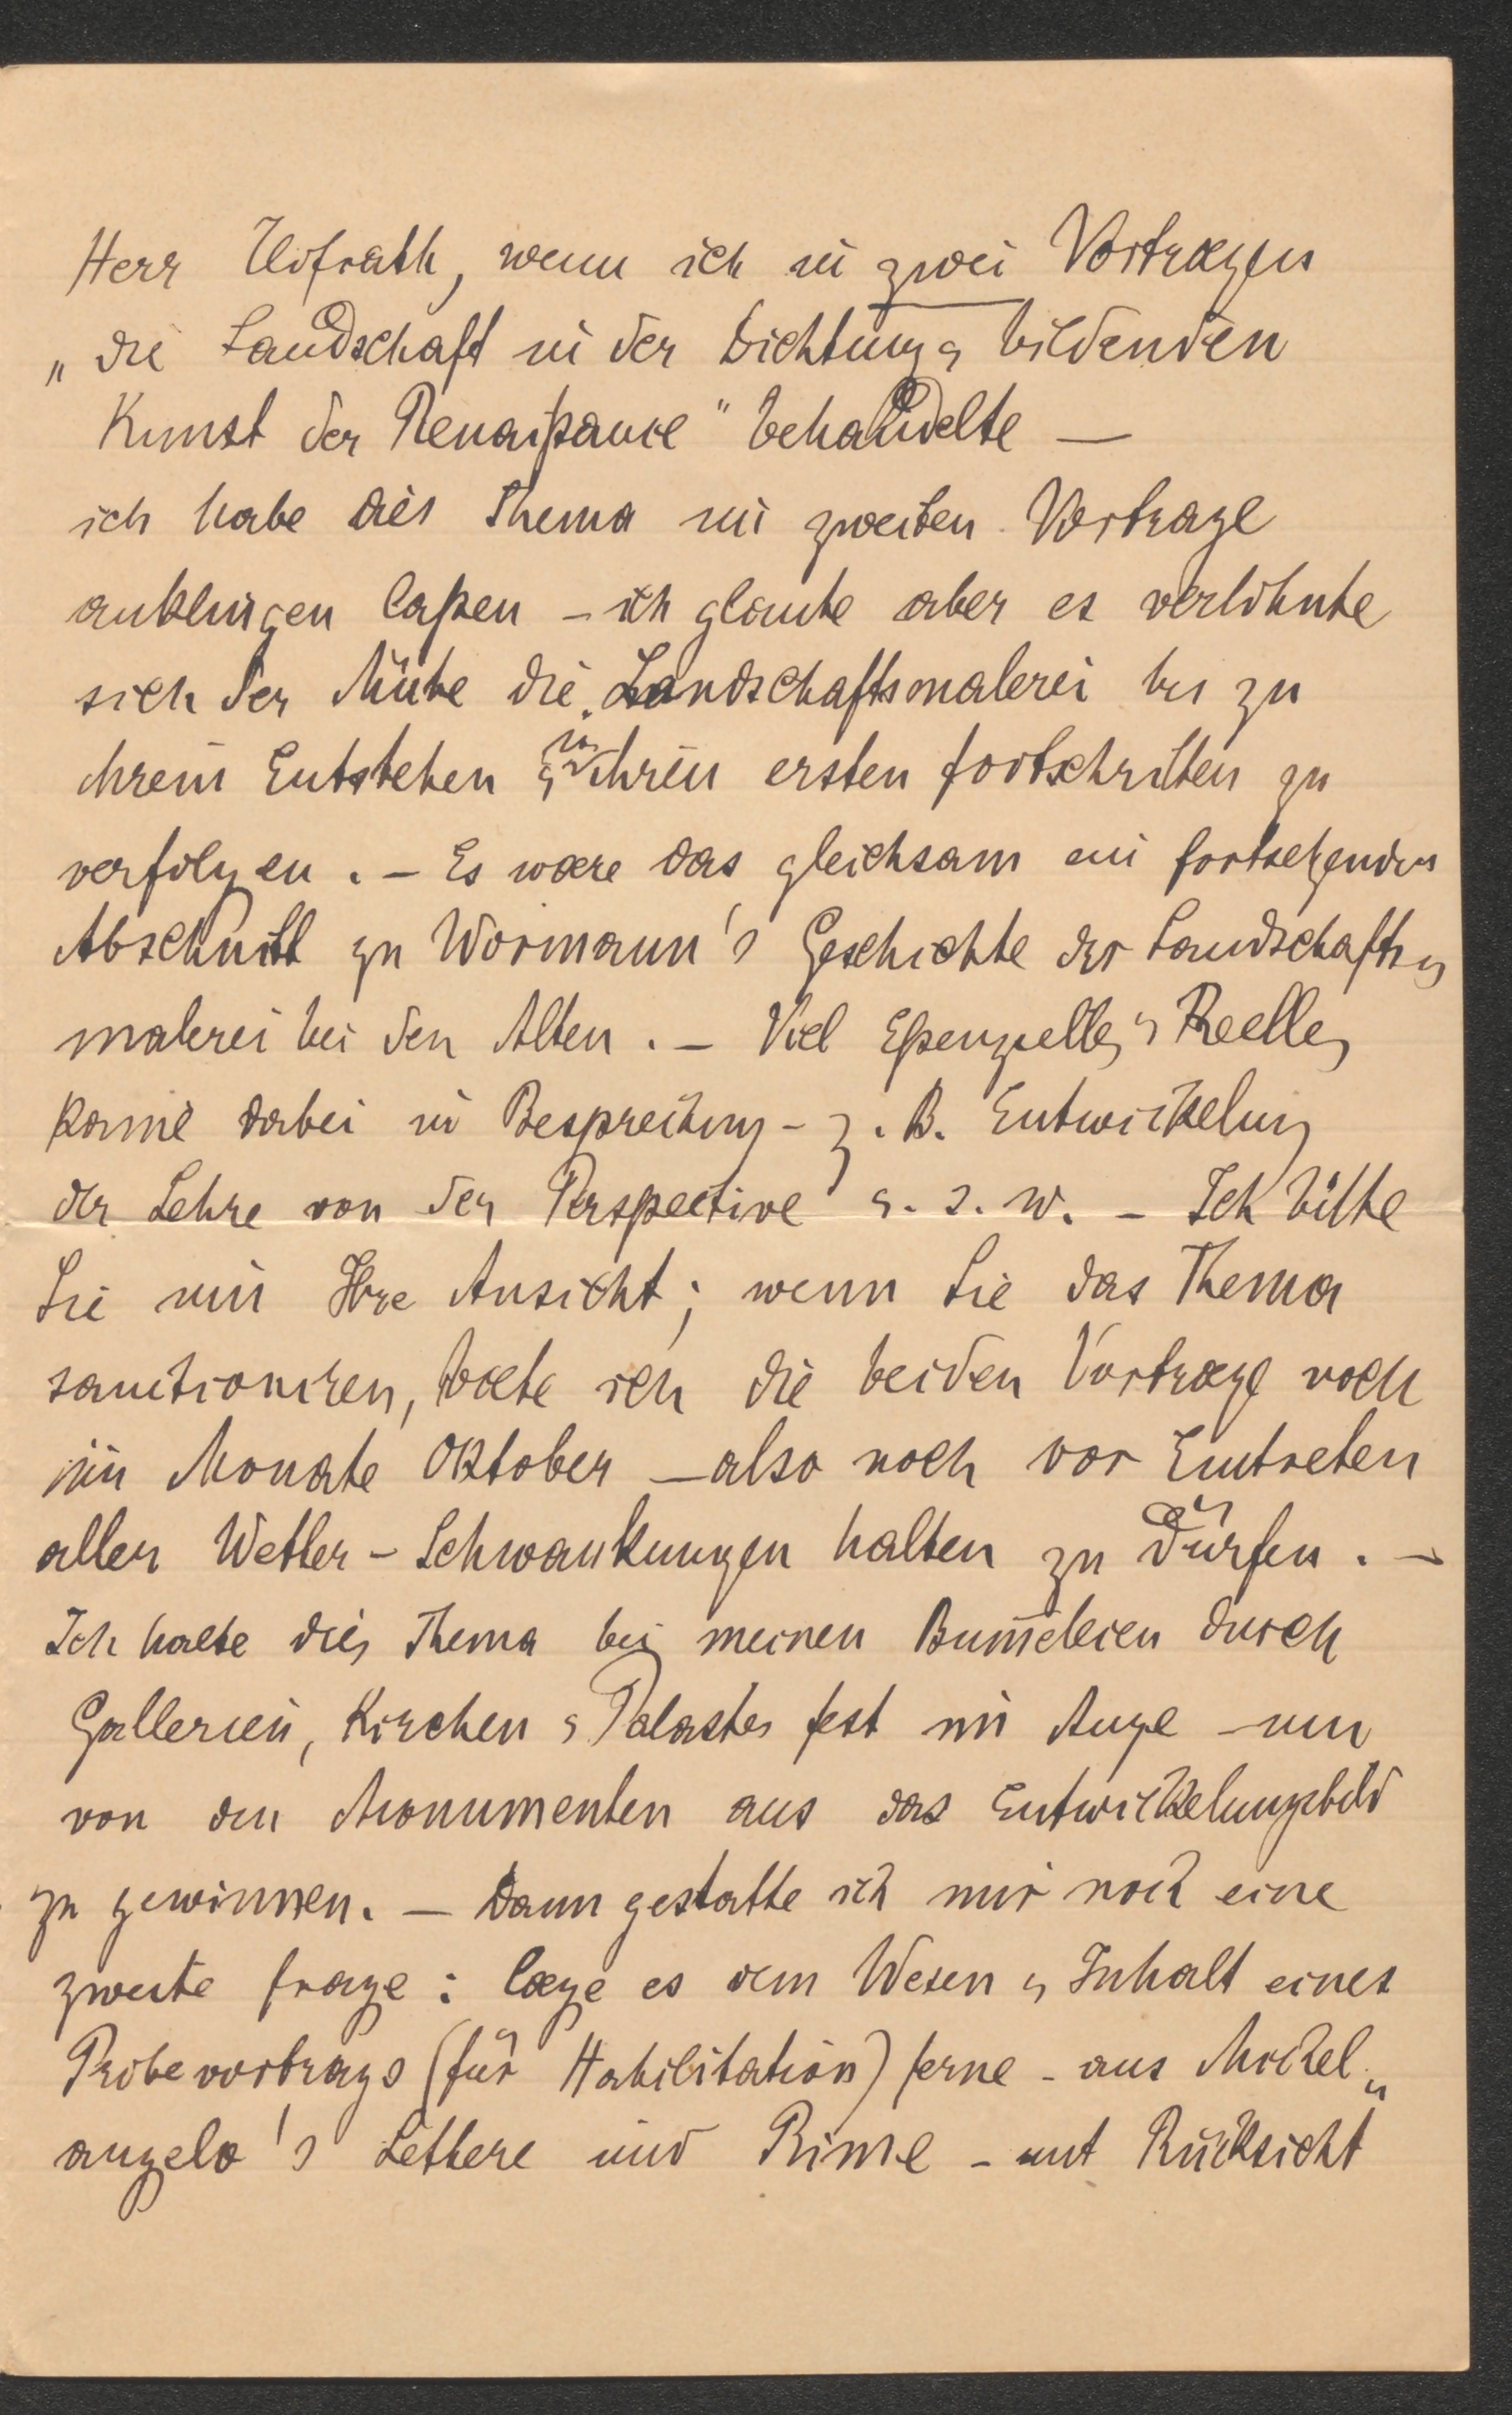 Herr Hofrath, wenn ich in zwei Vortraegen
„die Landschaft in der Dichtung & bildenden
Kunst der Renaißance" behandelte —
ich habe dies Thema im zweiten Vortrage
anklingen laßen – ich glaube aber es verlohnte
sich der Mühe die Landschaftsmalerei bis zu
ihrem Entstehen & in ihren ersten Fortschritten zu
verfolgen. – Es waere das gleichsam ein fortsetzender
Abschnitt zu Wörmann's Geschichte der Landschafts„
malerei bei den Alten. – Viel Eßenzielles & Reelles
kame dabei in Besprechung – z. B. Entwickelung
der Lehre von der Perspective u. s. w. – Ich bitte
Sie um Ihre Ansicht; wenn Sie das Thema
sanctioniren, baete ich die beiden Vortraege noch
im Monate Oktober – also noch vor Eintreten
aller Wetter-Schwankungen halten zu dürfen. –
Ich halte dies Thema bei meinen Bum̄eleien durch
Gallerien, Kirchen & Palaste fest im Auge – um
von den Monumenten aus das Entwickelungsbild
zu gewinnen. – Dann gestatte ich mir noch eine
zweite Frage: laege es dem Wesen & Inhalt eines
Probevortrags (für Habilitation) ferne – aus Michel„
angelo's Lettere und Rime – mit Rücksicht